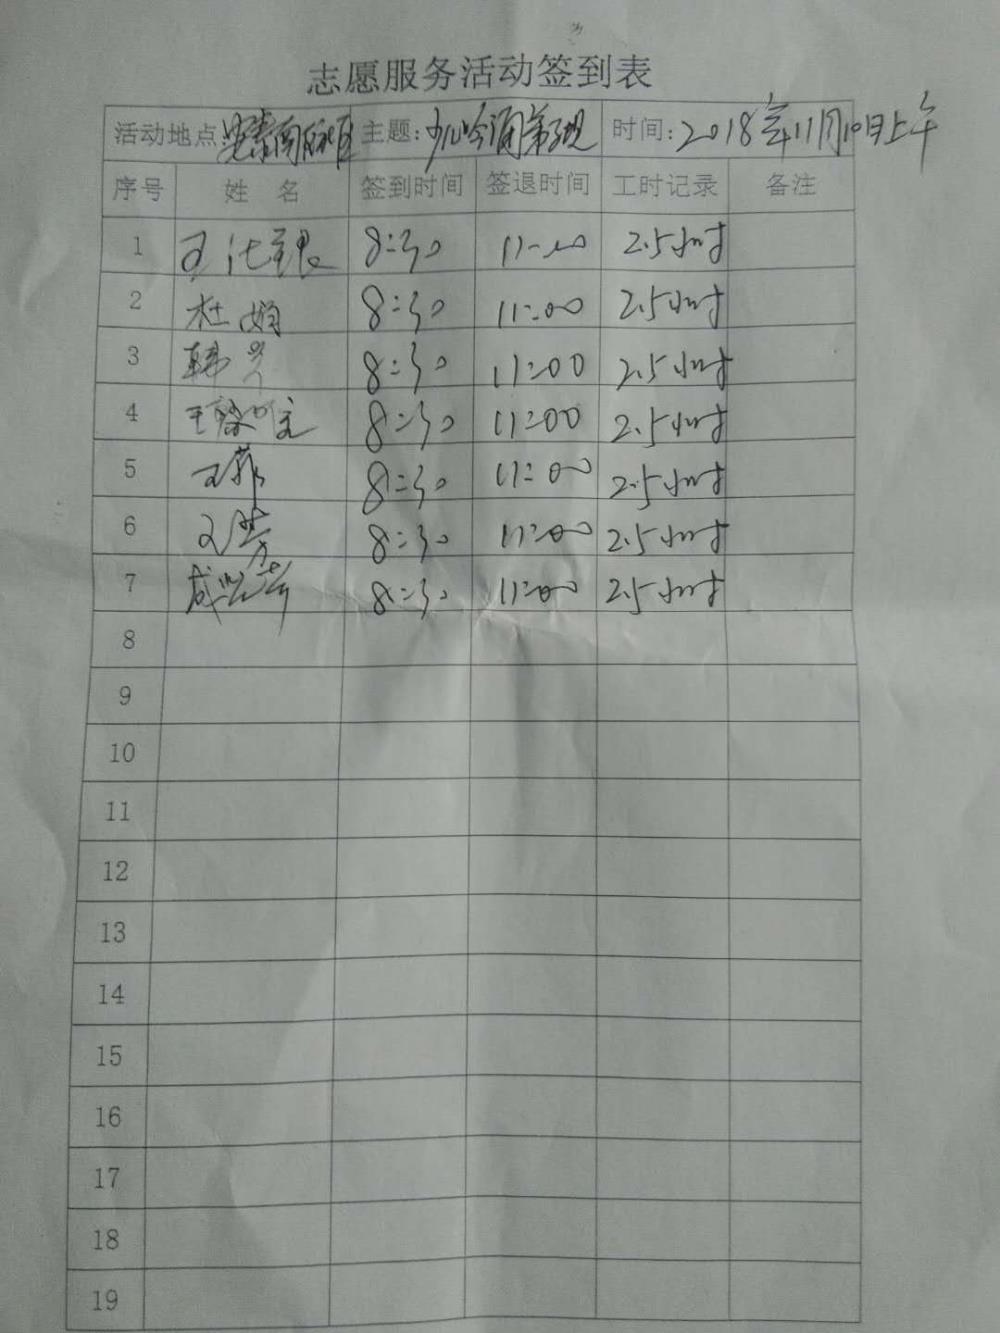 志愿服务活动签到表
活动地点: 主题:少儿吟诵 时间:2018年11月10日上午
序号 姓 名 签到时间 签退时间 工时记录 备注
1 王 8:30 11:00 2.5小时
2 杜娟 8:30 11:00 2.5小时
3 韩 8:30 11:00 2.5小时
4 王 8:30 11:00 2.5小时
5 王菲 8:30 11:00 2.5小时
6 王芳 8:30 11:00 2.5小时
7 8:30 11:00 2.5小时
8
9
10
11
12
13
14
15
16
17
18
19